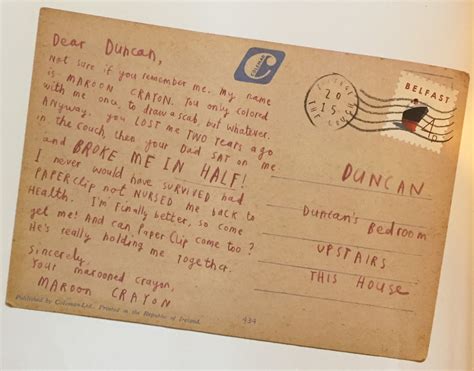 Dear Duncan,
not sure if you remember me. My name
is MAROON CRAYON. You only colored
with me once, to draw a scab, but whatever.
Anyway, you LOST ME TWO YEARS ago
in the couch, then your Dad SAT on me
and BROKE ME IN HALF!
I never would have survived had
PAPERCLip not NURSED me back to
Health. I'm finally better, so come
get me! And can PAPER CLiP come too?
He's really holding me together.
Sincerely,
Your marooned crayon,
MAROON CRAYON
Published by Colomer Ltd., Printed in the Republic of Ireland.
434
C
20
15
BELFAST
DUNCAN
Duncan's Bedroom
UPSTAIRS
THIS HOUSE